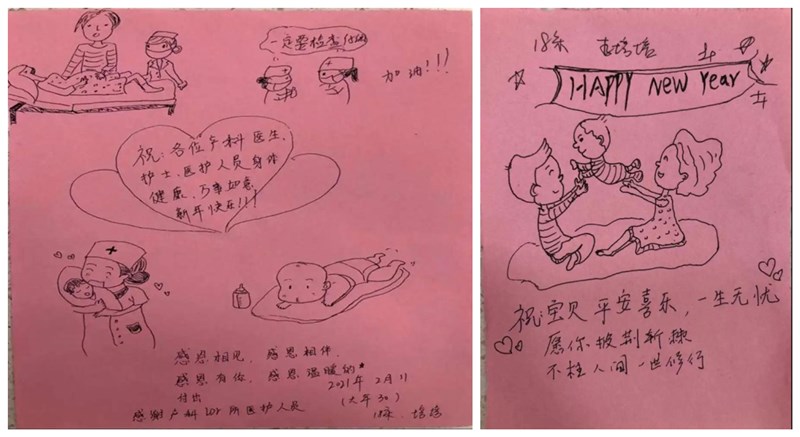 一定要检查仔细
加油!!!
祝:各位产科医生、
护士、医护人员身体
健康、万事如意
新年快乐!!!
感恩相见,感恩相伴,
感恩有你,感恩温暖的
付出
2021年2月11
(大年30)
感谢产科 所 医护人员
18床. 培培
18床 培培
HAPPY New Year
祝:宝贝平安喜乐,一生无忧
愿你披荆斩棘
不枉人间一世修行